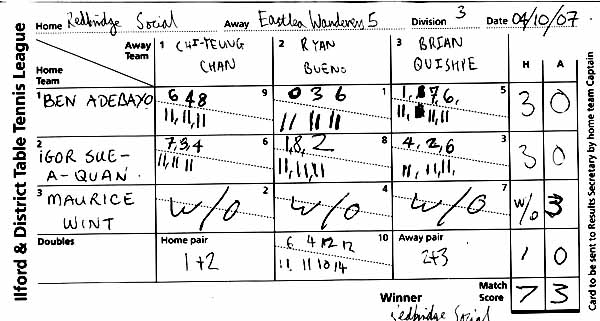 Ilford & District Table Tennis League
Home Redbridge Social Away Eastlea Wanderers 5 Division 3 Date 04/10/07.
Away Team 1 CHI-YEUNG CHAN 2 RYAN BUENO 3 BRIAN QUISHIE H A
Home Team
1 BEN ADEBAYO 9 1 5 3 0
6 4 8 0 3 6 1, 7, 6,
11, 11, 11 11 11 11 11, 11, 11
2 IGOR SUE-A-QUAN. 6 8 3 3 0
7, 3, 4 1, 8, 2 4, 2, 6
11, 11, 11 11, 11, 11 11, 11, 11,
3 MAURICE WINT W/O 2 W/O 4 W/O 7 W/O 3
Doubles Home pair 1+2 10 Away pair 2+3 1 0
6 4 12 12
11 11 10 14
Match Score 7 3
Winner Redbridge Social
Card to be sent to Results Secretary by home team Captain